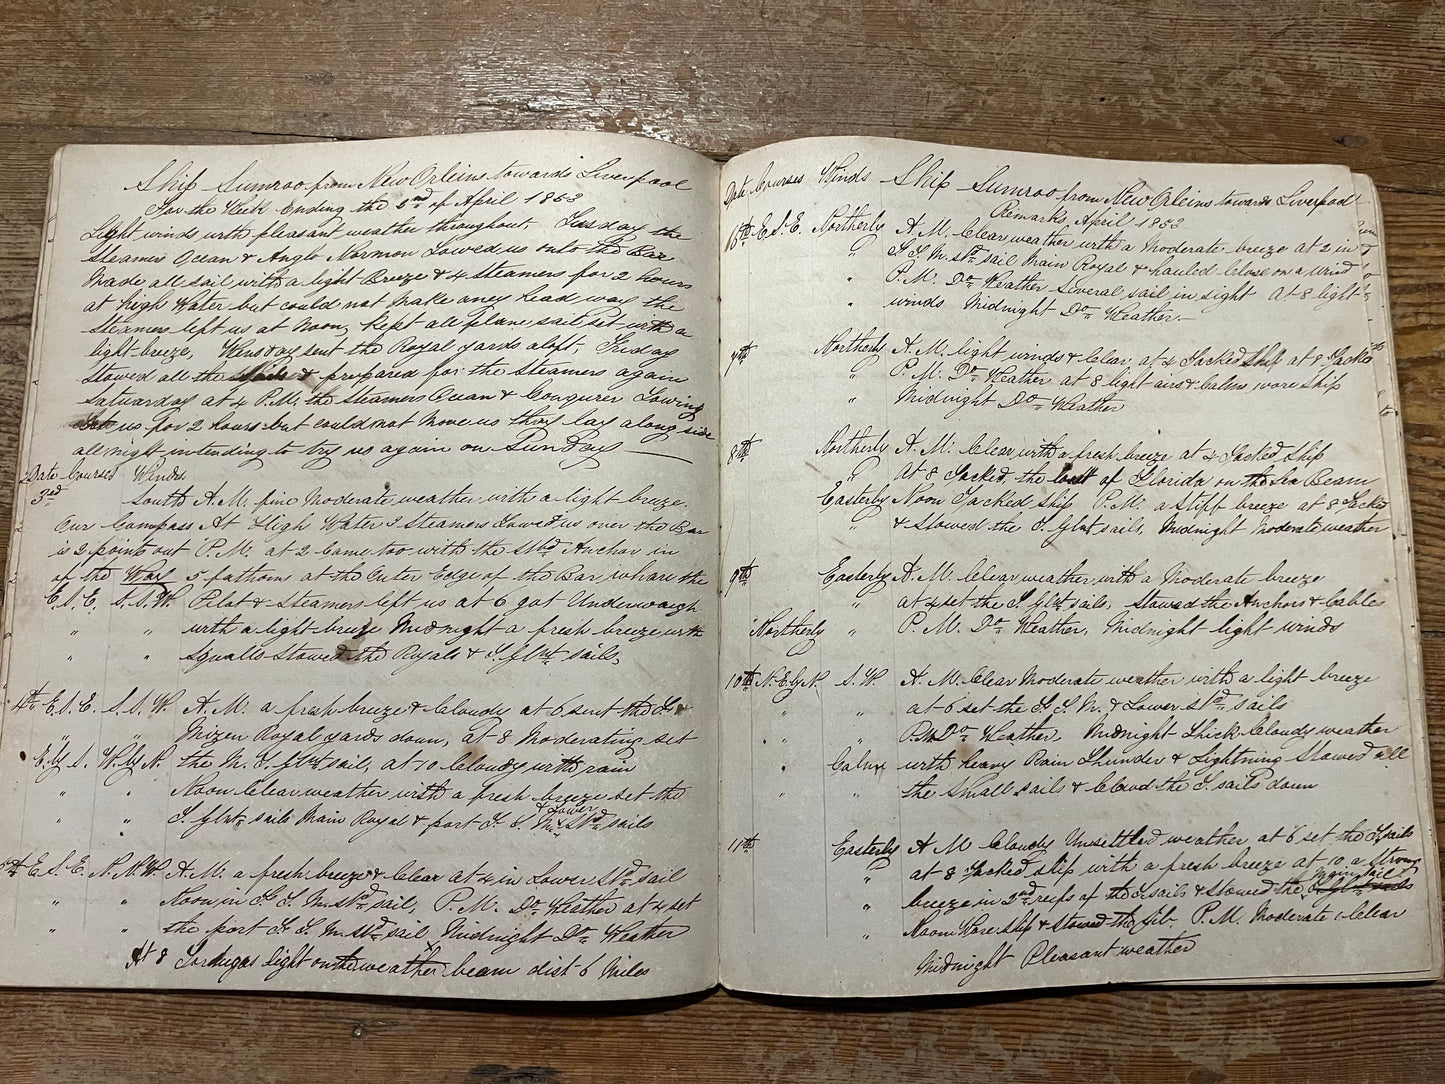 Ship Sumroo from New Orleins towards Liverpool
For the Week Ending the 2nd of April 1853
Light winds with pleasant weather throughout, Tuesday the
Steamers Ocean & Anglo Norman Towed us onto the Bar
Made all sail with a light Breeze & 4 Steamers for 2 hours
at high Water but could not make aney head way the
Steamers left us at Noon, Kept all plane sail set with a
light breeze, Wensday sent the Royal yards aloft, Friday
Stowed all the & prepared for the Steamers again
Satuarday at 4 P.M. the Steamers Ocean & Conqurer Towing
at us for 2 hours but could not move us they lay along side
all night intending to try us again on Sunday
Date Courses Winds
3rd South A.M. fine Moderate weather with a light breeze.
Our Compass At High Water 3 Steamers Towed us over the Bar
is 2 points out P.M. at 2 Came too with the Stbd Anchor in
of the Way 5 fathoms at the Outer Edge of the Bar, whare the
E.S.E. S.S.W. Pilot & Steamers left us at 6 got Underwaigh
" " with a light breeze Midnight a fresh breeze with
" " Squalls Stowed the Royals & T. Glnt sails,
4th E.S.E. S.S.W. A.M. a fresh breeze & Cloudy at 6 sent the &
" " Mizen Royal yards down, at 8 Moderating set
E. by S. W. by N. the M. T. Glnt sail, at 10 Cloudy with rain
" " Noon Clear weather with a fresh breeze set the
" " T. Glnt sails Main Royal & port T. T. M. & Lower Std sails
5th E.S.E. N.N.W. A.M. a fresh breeze & Clear at 4 in Lower Std sail
" " Noon in T. M. Std sail, P.M. Do Weather at 4 set
" " the port T. M. Std sail Midnight Do Weather
At 8 Tortugas light on the weather beam dist 6 Miles
Date Courses Winds Ship Sumroo from New Orleins towards Liverpool
Remarks April 1853
E.S.E. Northerly A.M. Clear weather with a Moderate breeze at 2 in
" T. M. Std sail Main Royal & hauled Close on a wind
" P.M. Do Weather Several sail in sight At 8 light
" winds Midnight Do Weather.
7th Northerly A.M. light winds & Clear, at 4 Tacked Ship at 8 Tacked
" P.M. Do Weather at 8 light airs & Calms, wore Ship
" Midnight Do Weather
8th Northerly A.M. Clear with a fresh breeze at 4 Tacked Ship
" At 8 Tacked, the of Florida on the Lea Beam
Easterly Noon Tacked Ship P.M. a Stiff breeze at 8 Tacked
" & Stowed the T. Glnt sails, Midnight Moderate weather
9th Easterly A.M. Clear weather with a Moderate breeze
" at 4 set the T. Glnt sails, Stowed the Anchors & Cables
Northerly " P.M. Do Weather, Midnight light winds
10th N.E. by N. S.W. A.M. Clear Moderate weather with a light breeze
" " at 6 set the T. M. & Lower Std sails
" " P.M. Do Weather, Midnight Thick Cloudy weather
" Calm with heavy Rain Thunder & Lightning Stowed all
" " the Small sails & Clewd the T. sails Down
11th Easterly A.M. Cloudy Unsettled weather at 6 set the T. sails
" at 8 Tacked ship with a fresh breeze at 10 a Strong
" breeze in 2nd reefs of the T. sails & Stowed the Mainsail
" Noon Wore Ship & Stowed the Jib. P.M. Moderate & Clear
Midnight Pleasant weather